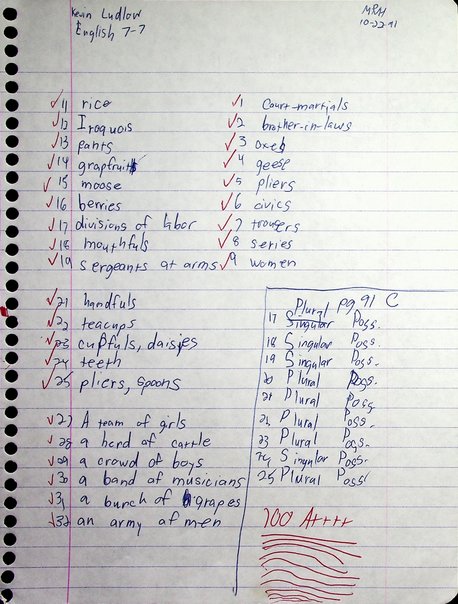 Kevin Ludlow
English 7-7
MRH
10-22-91
11 rice
12 Iroquois
13 pants
14 grapefruit
15 moose
16 berries
17 divisions of labor
18 mouthfuls
19 sergeants at arms
1 Court-martials
2 brother-in-laws
3 oxen
4 geese
5 pliers
6 civics
7 trousers
8 series
9 women
21 handfuls
22 teacups
23 cupfuls, daisies
24 teeth
25 pliers, spoons
27 A team of girls
28 a herd of cattle
29 a crowd of boys
30 a band of musicians
31 a bunch of grapes
32 an army of men
Plural pg 91 C
17 Singular Poss.
18 Singular Poss.
19 Singular Poss.
20 Plural Poss.
21 Plural Poss.
22 Plural Poss.
23 Plural Poss.
24 Singular Poss.
25 Plural Poss.
100 A++++